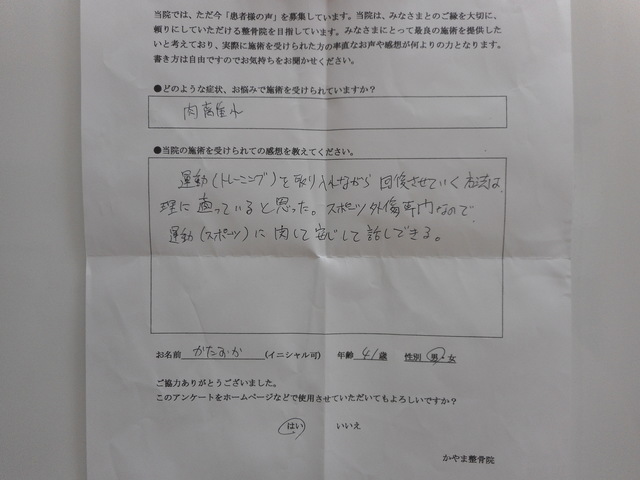 当院では、ただ今「患者様の声」を募集しています。当院は、みなさまとのご縁を大切に、
頼りにしていただける整骨院を目指しています。みなさまにとって最良の施術を提供した
いと考えており、実際に施術を受けられた方の率直なお声や感想が何よりの力となります。
書き方は自由ですのでお気持ちをお聞かせください。
●どのような症状、お悩みで施術を受けられていますか?
肉離れ
●当院の施術を受けられての感想を教えてください。
運動(トレーニング)を取り入れながら 回復させていく方法は、
理に適っていると思った。スポーツ外傷専門なので、
運動(スポーツ)に関して安心して話しできる。
お名前 かたおか (イニシャル可) 年齢 41歳 性別 男・女
ご協力ありがとうございました。
このアンケートをホームページなどで使用させていただいてもよろしいですか?
はい いいえ
かやま整骨院